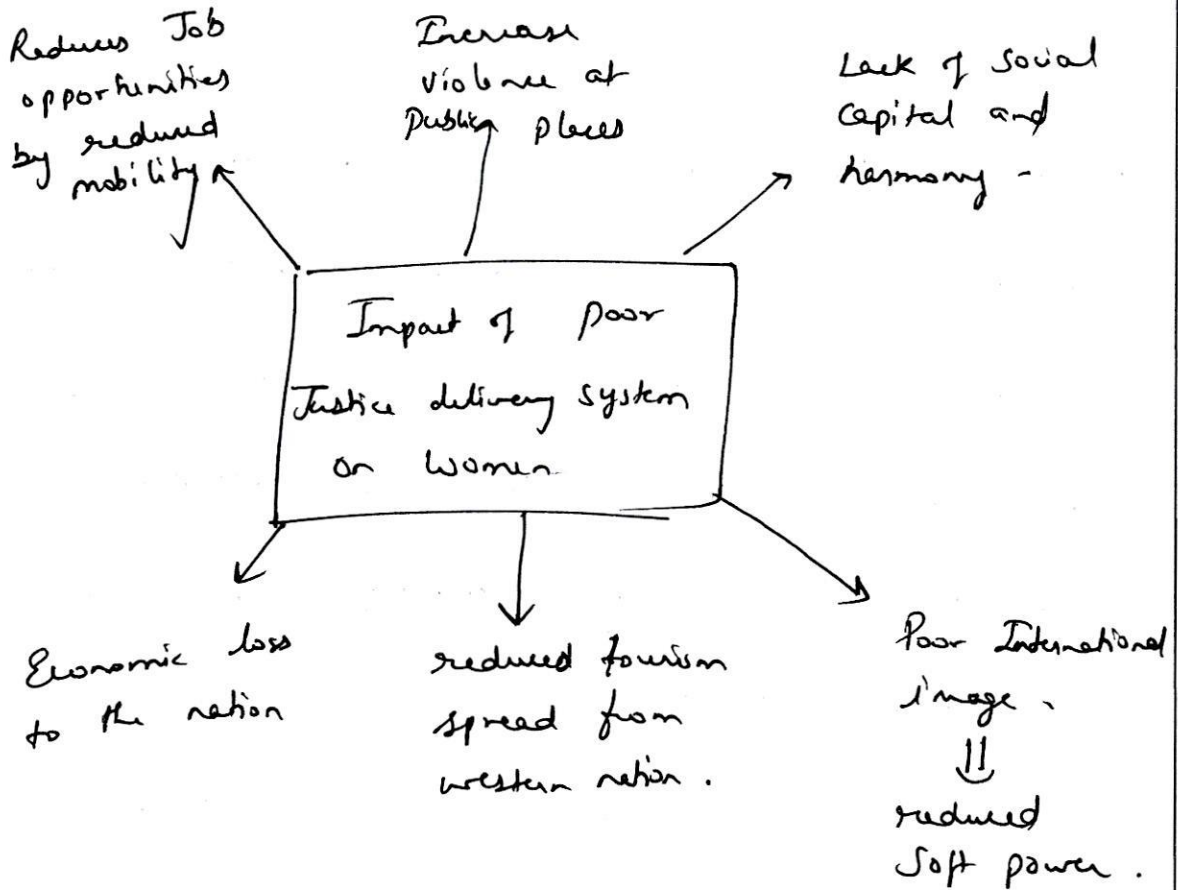 Reduces Job
opportunities
by reduced
mobility
Increase
violence at
Public places
Lack of social
capital and
harmony -
Impact of poor
Justice delivery system
on women
Economic loss
to the nation
reduced tourism
spread from
western nation.
Poor International
image.
reduced
Soft power.